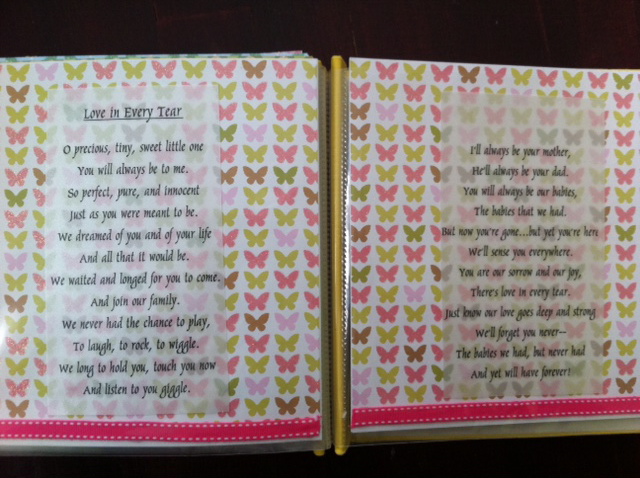 Love in Every Tear
O precious, tiny, sweet little one
You will always be to me.
So perfect, pure, and innocent
Just as you were meant to be.
We dreamed of you and of your life
And all that it would be.
We waited and longed for you to come.
And join our family.
We never had the chance to play,
To laugh, to rock, to wiggle.
We long to hold you, touch you now
And listen to you giggle.
I'll always be your mother,
He'll always be your dad.
You will always be our babies,
The babies that we had.
But now you're gone...but yet you're here
We'll sense you everywhere.
You are our sorrow and our joy,
There's love in every tear.
Just know our love goes deep and strong
We'll forget you never—
The babies we had, but never had
And yet will have forever!